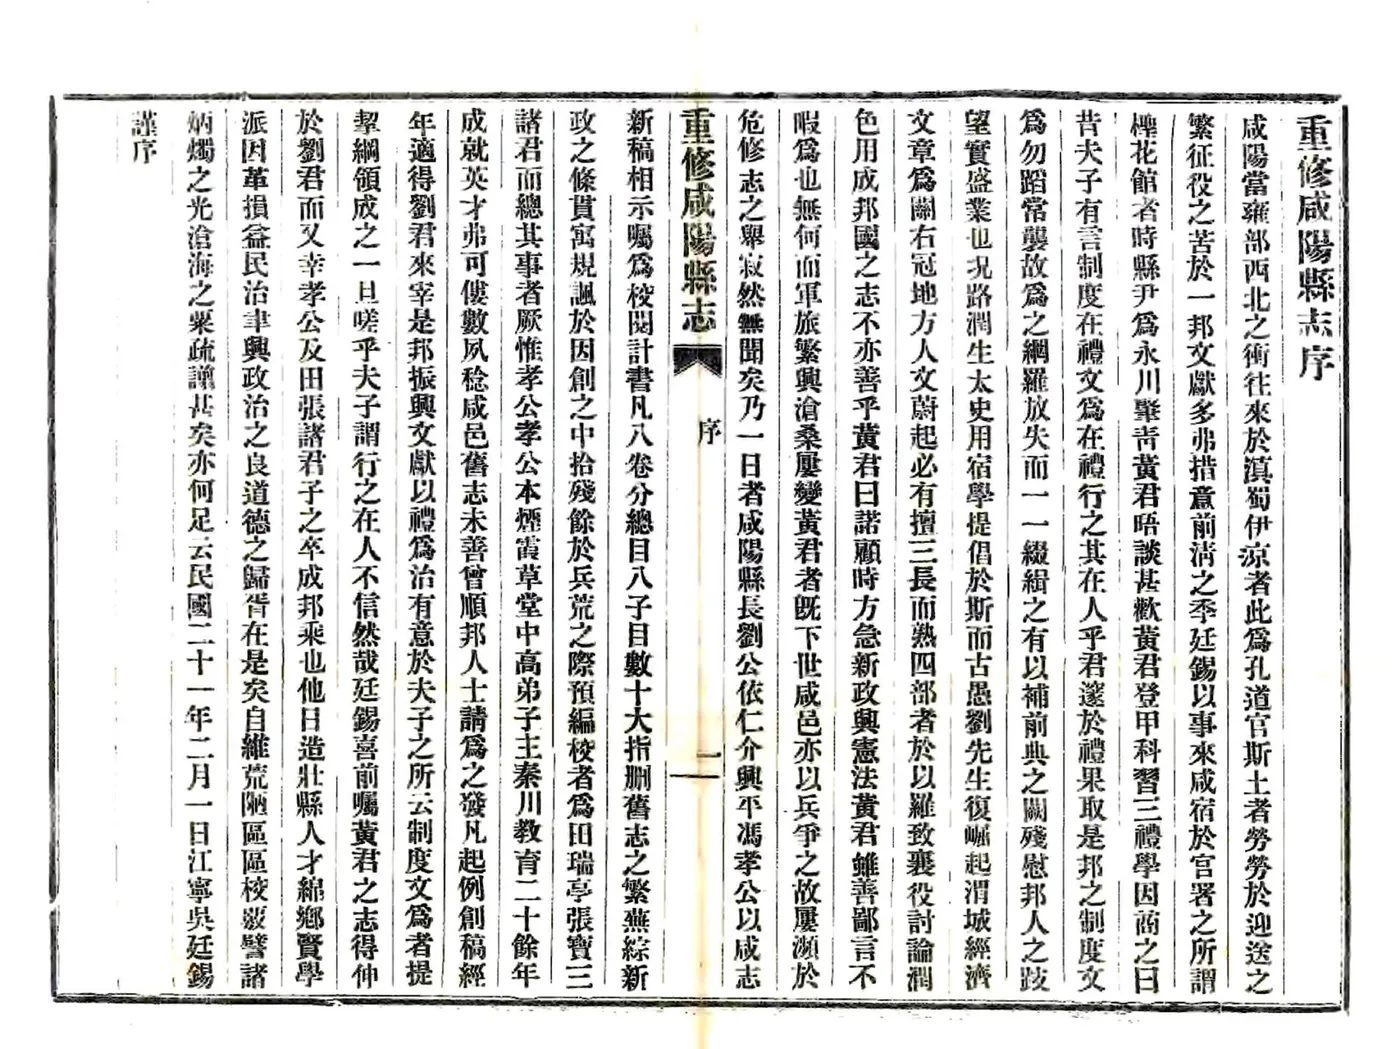 重修咸陽縣志序
咸陽當雍部西北之衝往來於滇蜀伊涼者此爲孔道官斯土者勞勞於迎送之
繁征役之苦於一邦文獻多弗措意前淸之季廷錫以事來咸宿於官署之所謂
樨花館者時縣尹爲永川肇靑黃君晤談甚歡黃君登甲科習三禮學因啇之曰
昔夫子有言制度在禮文爲在禮行之其在人乎君邃於禮果取是邦之制度文
爲勿蹈常襲故爲之網羅放失而一一綴緝之有以補前典之闕殘慰邦人之跂
望實盛業也況路潤生太史用宿學提倡於斯而古愚劉先生復崛起渭城經濟
文章爲關右冠地方人文蔚起必有擅三長而熟四部者於以羅致襄役討論潤
色用成邦國之志不亦善乎黃君曰諾顧時方急新政興憲法黃君雖善鄙言不
暇爲也無何而軍旅繁興滄桑屢變黃君者旣下世咸邑亦以兵爭之故屢瀕於
危修志之舉寂然無聞矣乃一日者咸陽縣長劉公依仁介興平馮孝公以咸志
重修咸陽縣志
序
一
新稿相示囑爲校閱計書凡八卷分總目八子目數十大指删舊志之繁蕪綜新
政之條貫寓規諷於因創之中拾殘餘於兵荒之際預編校者爲田瑞亭張寶三
諸君而總其事者厥惟孝公孝公本煙霞草堂中高弟子主秦川教育二十餘年
成就英才弗可僂數夙稔咸邑舊志未善曾順邦人士請爲之發凡起例創稿經
年適得劉君來宰是邦振興文獻以禮爲治有意於夫子之所云制度文爲者提
挈綱領成之一旦嗟乎夫子謂行之在人不信然哉廷錫喜前囑黃君之志得伸
於劉君而又幸孝公及田張諸君子之卒成邦乘也他日造壯縣人才綿鄉賢學
派因革損益民治聿興政治之良道德之歸胥在是矣自維荒陋區區校覈譬諸
炳燭之光滄海之粟疏譾甚矣亦何足云民國二十一年二月一日江寧吳廷錫
謹序